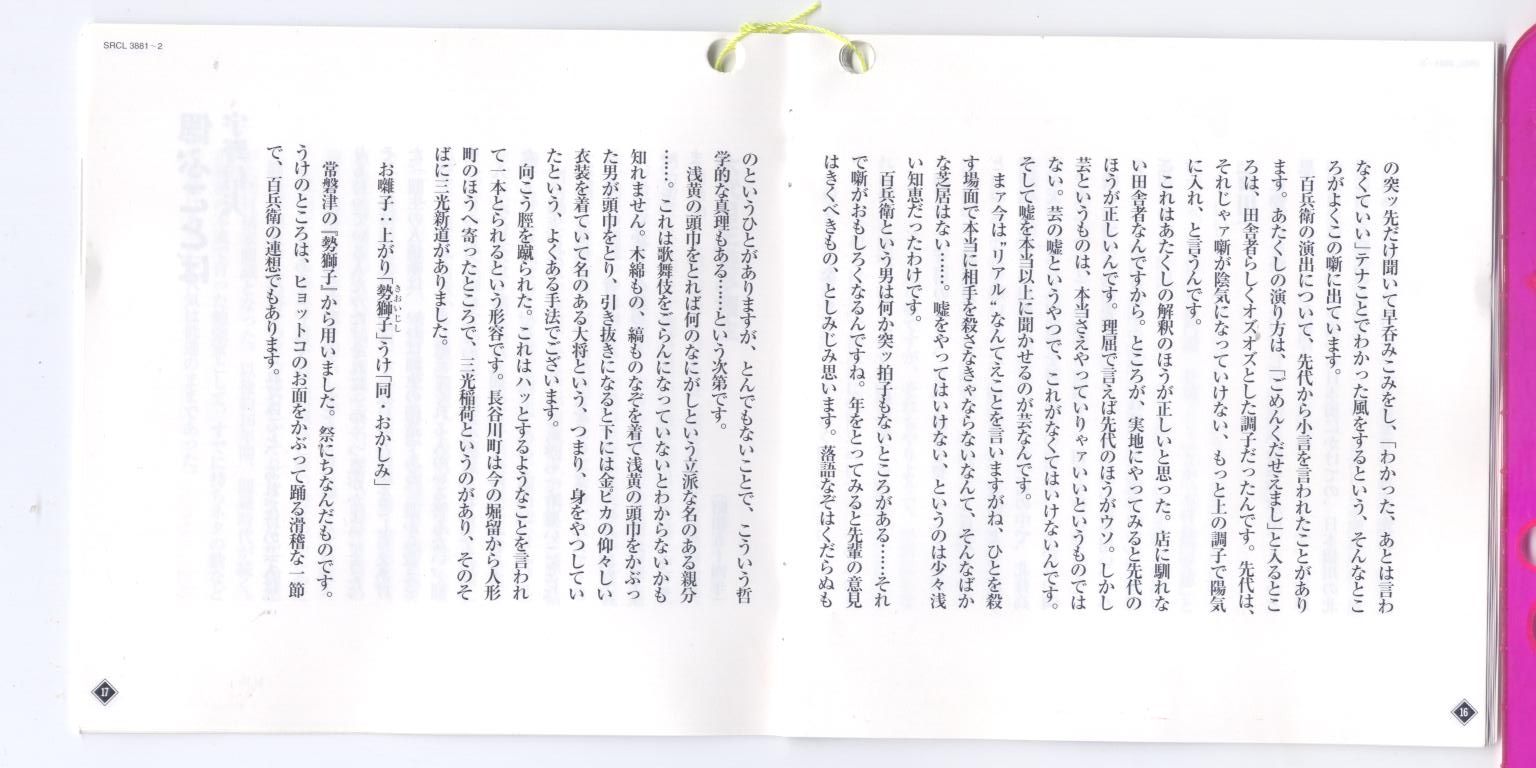 の突ッ先だけ聞いて早呑みこみをし、「わかった、あとは言わ
なくていい」テナことでわかった風をするという、そんなとこ
ろがよくこの噺に出ています。
百兵衛の演出について、先代から小言を言われたことがあり
ます。あたくしの演り方は、「ごめんくだせえまし」と入るとこ
ろは、田舎者らしくオズオズとした調子だったんです。先代は、
それじゃァ噺が陰気になっていけない、もっと上の調子で陽気
に入れ、と言うんです。
これはあたくしの解釈のほうが正しいと思った。店に馴れな
い田舎者なんですから。ところが、実地にやってみると先代の
ほうが正しいんです。理屈で言えば先代のほうがウソ。しかし
芸というものは、本当さえやっていりゃァいいというものでは
ない。芸の嘘というやつで、これがなくてはいけないんです。
そして嘘を本当以上に聞かせるのが芸なんです。
まァ今は〝リアル〟なんてえことを言いますがね、ひとを殺
す場面で本当に相手を殺さなきゃならないなんて、そんなばか
な芝居はない……。嘘をやってはいけない、というのは少々浅
い知恵だったわけです。
百兵衛という男は何か突ッ拍子もないところがある……それ
で噺がおもしろくなるんですね。年をとってみると先輩の意見
はきくべきもの、としみじみ思います。落語なぞはくだらぬも
16
SRCL 3881~2
のというひとがありますが、とんでもないことで、こういう哲
学的な真理もある……という次第です。
浅黄の頭巾をとれば何のなにがしという立派な名のある親分
……。これは歌舞伎をごらんになっていないとわからないかも
知れません。木綿もの、縞ものなぞを着て浅黄の頭巾をかぶっ
た男が頭巾をとり、引き抜きになると下には金ピカの仰々しい
衣装を着ていて名のある大将という、つまり、身をやつしてい
たという、よくある手法でございます。
向こう脛を蹴られた。これはハッとするようなことを言われ
て一本とられるという形容です。長谷川町は今の堀留から人形
町のほうへ寄ったところで、三光稲荷というのがあり、そのそ
ばに三光新道がありました。
お囃子:上がり「勢獅子」うけ「同・おかしみ」
きおいじし
常磐津の『勢獅子』から用いました。祭にちなんだものです。
うけのところは、ヒョットコのお面をかぶって踊る滑稽な一節
で、百兵衛の連想でもあります。
17